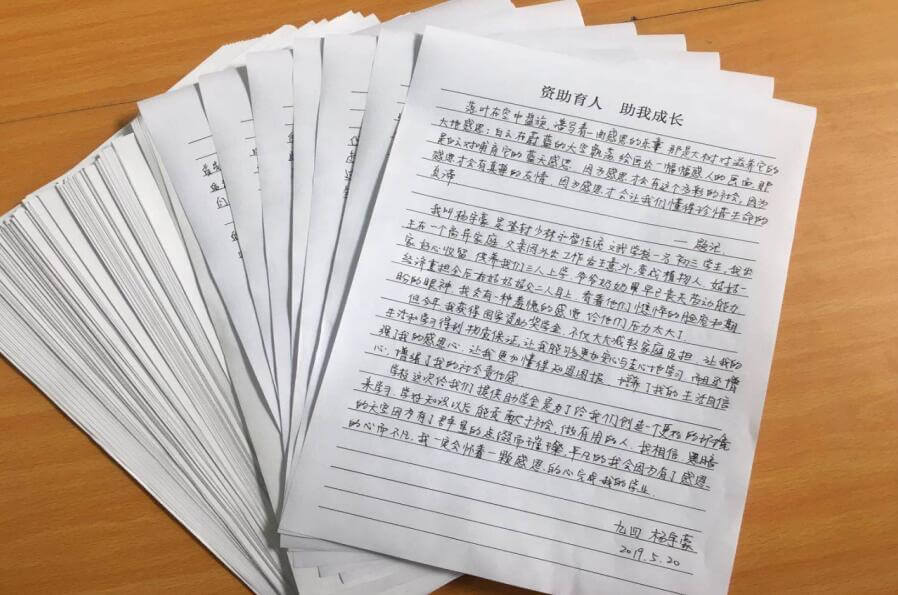 资助育人 助我成长
落叶在空中盘旋,谱写着一曲感恩的乐章,那是大树对滋养它的
大地感恩;白云在蔚蓝的天空飘荡,绘画出一幅幅感人的画面,那
是白云对哺育它的蓝天感恩。因为感恩才会有这个多彩的社会,因为
感恩才会有真挚的友情,因为感恩才会让我们懂得珍惜生命的
真谛。
——题记
我叫杨宇豪,是登封少林永智传统文武学校一名初三学生,我出
生在一个离异家庭,父亲因外出工作发生意外,变成植物人,姑姑一
家好心收留,供养我们三人上学,爷爷奶奶早已丧失劳动能力
经济重担全压在姑姑姑父二人身上,看着他们憔悴的脸容和期
盼的眼神,我会有一种羞愧的感觉,给他们压力太大了
但今年我获得国家资助奖学金,不仅大大减轻家庭负担,让我的
生活和学习得到物质保证,让我能够更加安心与专心地学习,而且增
强了我的感恩心,让我更加懂得知恩图报,培养了我的生活自信
心,增强了我的社会责任感。
学校这次给我们提供助学金是为了给我们创造一个更好的环境
来学习,学好知识以后能贡献于社会,做有用的人,我相信,黑暗
的天空因为有了群星的点缀而璀璨,平凡的我会因为有了感恩
的心而不凡,我一定会怀着一颗感恩的心完成我的学业。
九四 杨宇豪
2019.5.20